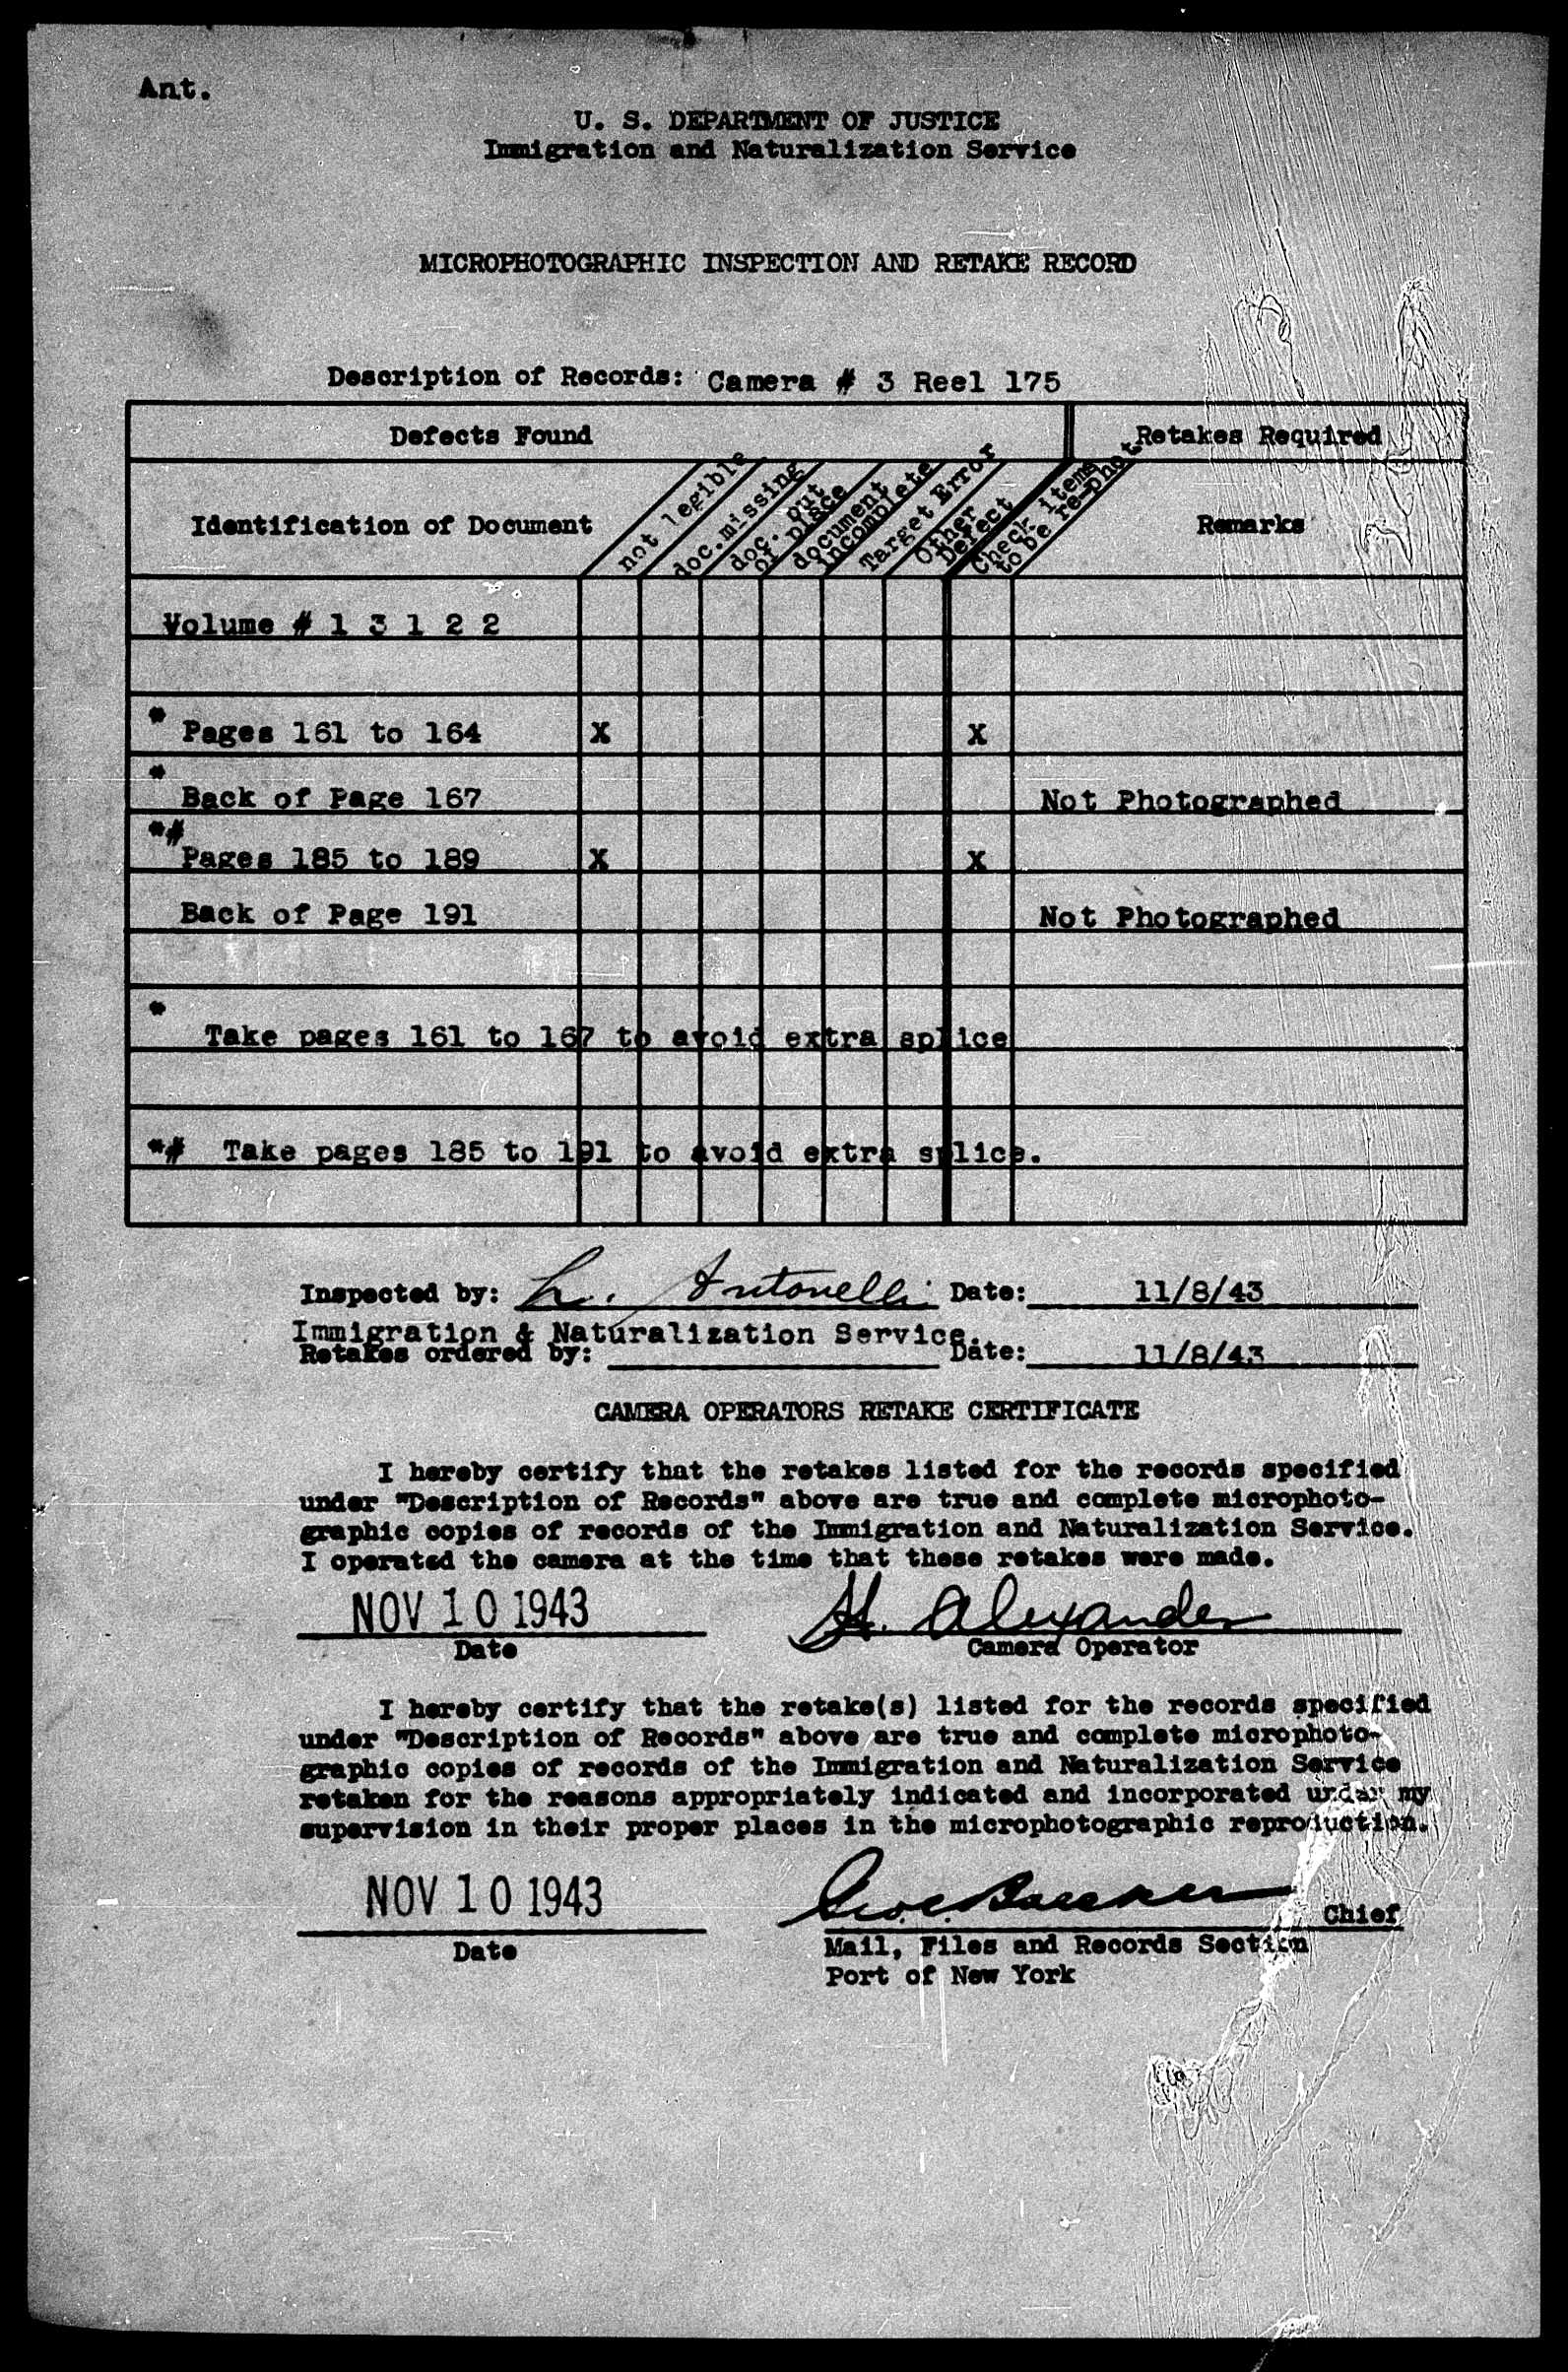 Ant.
U. S. DEPARTMENT OF JUSTICE
Immigration and Naturalization Service
MICROPHOTOGRAPHIC INSPECTION AND RETAKE RECORD
Description of Records: Camera # 3 Reel 175
Defects Found
Retakes Required
Identification of Document
not legible
doc.missing
doc. out
of place
document
incomplete
Target Error
Other
Defect
Check items
to be re-phot.
Remarks
Volume # 1 3 1 2 2
*
Pages 161 to 164 X X
*
Back of Page 167 Not Photographed
*#
Pages 185 to 189 X X
Back of Page 191 Not Photographed
*
Take pages 161 to 167 to avoid extra splice
*# Take pages 185 to 191 to avoid extra splice.
Inspected by: L. Antonelli Date: 11/8/43
Immigration & Naturalization Service.
Retakes ordered by: Date: 11/8/43
CAMERA OPERATORS RETAKE CERTIFICATE
I hereby certify that the retakes listed for the records specified
under "Description of Records" above are true and complete microphoto-
graphic copies of records of the Immigration and Naturalization Service.
I operated the camera at the time that these retakes were made.
NOV 10 1943 H. Alexander
Date Camera Operator
I hereby certify that the retake(s) listed for the records specified
under "Description of Records" above are true and complete microphoto-
graphic copies of records of the Immigration and Naturalization Service
retaken for the reasons appropriately indicated and incorporated under my
supervision in their proper places in the microphotographic reproduction.
NOV 10 1943 Chief
Date Mail, Files and Records Section
Port of New York